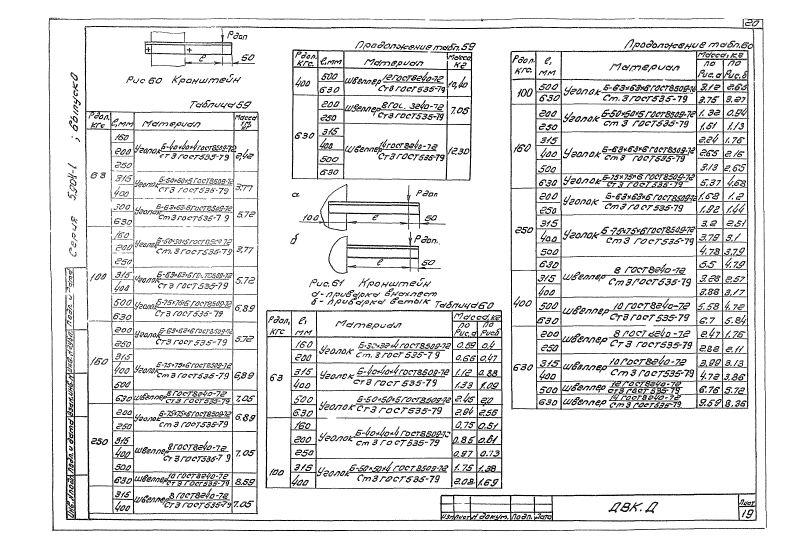 20
Рдоп
e
50
Рис 60 Кронштейн
Таблица 59
Рдоп. кгс
ℓ, мм
Материал
Масса кг
63
160
200
250
Уголок Б-40×40×4 ГОСТ 8509-72
Ст 3 ГОСТ 535-79
2,42
315
400
Уголок Б-50×50×5 ГОСТ 8509-72
Ст 3 ГОСТ 535-79
3,77
500
630
Уголок Б-63×63×6 ГОСТ 8509-72
Ст 3 ГОСТ 535-79
5,72
100
160
200
250
Уголок Б-50×50×5 ГОСТ 8509-72
Ст 3 ГОСТ 535-79
3,77
315
400
Уголок Б-63×63×6 ГОСТ 8509-72
Ст 3 ГОСТ 535-79
5,72
500
630
Уголок Б-75×75×6 ГОСТ 8509-72
Ст 3 ГОСТ 535-79
6,89
160
200
250
Уголок Б-63×63×6 ГОСТ 8509-72
Ст 3 ГОСТ 535-79
5,72
315
400
500
Уголок Б-75×75×6 ГОСТ 8509-72
Ст 3 ГОСТ 535-79
6,89
630
Швеллер 8 ГОСТ 8240-72
Ст 3 ГОСТ 535-79
7,05
250
200
250
Уголок Б-75×75×6 ГОСТ 8509-72
Ст 3 ГОСТ 535-79
6,89
315
400
500
Швеллер 8 ГОСТ 8240-72
Ст 3 ГОСТ 535-79
7,05
630
Швеллер 10 ГОСТ 8240-72
Ст 3 ГОСТ 535-79
8,59
315
400
Швеллер 8 ГОСТ 8240-72
Ст 3 ГОСТ 535-79
7,05
Продолжение табл. 59
Рдоп. кгс.
ℓ, мм
Материал
Масса кг
400
500
630
Швеллер 12 ГОСТ 8240-72
Ст 3 ГОСТ 535-79
10,40
630
200
250
Швеллер 8 ГОСТ 8240-72
Ст 3 ГОСТ 535-79
7,05
315
400
500
630
Швеллер 14 ГОСТ 8240-72
Ст 3 ГОСТ 535-79
12,30
а
Рдоп
100
e
50
б
Рдоп.
e
50
Рис. 61 Кронштейн
а - приварка внахлест
б - приварка встык
Таблица 60
Рдоп. кгс
ℓ, мм
Материал
Масса, кг
по Рис. а
по Рис. б
63
160
200
Уголок Б-32×32×4 ГОСТ 8509-72
Ст. 3 ГОСТ 535-79
0,59 0,4
0,66 0,47
315
400
Уголок Б-40×40×4 ГОСТ 8509-72
Ст. 3 ГОСТ 535-79
1,12 0,88
1.33 1,09
500
630
Уголок Б-50×50×5 ГОСТ 8509-72
Ст 3 ГОСТ 535-79
2,45 2,0
2,94 2,56
100
160
200
250
Уголок Б-40×40×4 ГОСТ 8509-72
Ст 3 ГОСТ 535-79
0,75 0,51
0,85 0,61
0,97 0,73
315
400
Уголок Б-50×50×4 ГОСТ 8509-72
Ст 3 ГОСТ 535-79
1.75 1,38
2.08 1,69
Продолжение табл. 60
Рдоп. кгс.
ℓ, мм
Материал
Масса, кг
по Рис. а
по Рис. б
100
500
630
Уголок Б-63×63×6 ГОСТ 8509-72
Ст. 3 ГОСТ 535-79
3.12 2,65
3.75 3,27
160
200
250
Уголок Б-50×50×5 ГОСТ 8509-72
Ст 3 ГОСТ 535-79
1.32 0,94
1,51 1,13
315
400
500
Уголок Б-63×63×6 ГОСТ 8509-72
Ст 3 ГОСТ 535-79
2,24 1.76
2,65 2,16
3.13 2,65
630
Уголок Б-75×75×6 ГОСТ 8509-72
Ст 3 ГОСТ 535-79
5,37 4,68
250
200
250
Уголок Б-63×63×6 ГОСТ 8509-72
Ст 3 ГОСТ 535-79
1,68 1.2
1.92 1,44
315
400
500
630
Уголок Б-75×75×6 ГОСТ 8509-72
Ст 3 ГОСТ 535-79
3,2 2,51
3,79 3,1
4,78 3,79
5,5 4,79
400
315
400
Швеллер 8 ГОСТ 8240-72
Ст 3 ГОСТ 535-79
3,28 2,57
3,88 3,17
500
630
Швеллер 10 ГОСТ 8240-72
Ст 3 ГОСТ 535-79
5,58 4,72
6,7 5,84
630
200
250
Швеллер 8 ГОСТ 8240-72
Ст 3 ГОСТ 535-79
2,47 1,76
2,82 2,11
315
400
Швеллер 10 ГОСТ 8240-72
Ст 3 ГОСТ 535-79
3,99 3,13
4,72 3,86
500
Швеллер 12 ГОСТ 8240-72
Ст 3 ГОСТ 535-79
6,76 5,72
630
Швеллер 14 ГОСТ 8240-72
Ст 3 ГОСТ 535-79
9.59 8,36
Серия 5.904-1 ; Выпуск 0
Инв. № подл. Подп. и дата Взам. инв. № Инв. № дубл. Подп. и дата
Изм Лист № докум. Подп. Дата
ДВК. Д
Лист
19